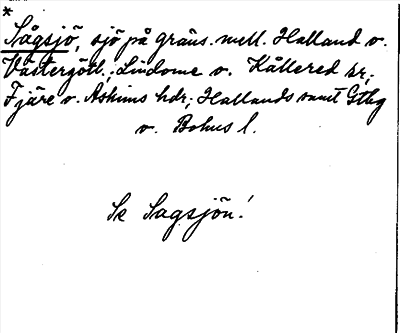 *
Sågsjö, sjö på gräns. mell. Halland o.
Västergötl.; Lindome o. Kållered sr,;
Fjäre o. Askims hdr; Hallands samt Gtbg
o. Bohus l.
Se Sagsjön!